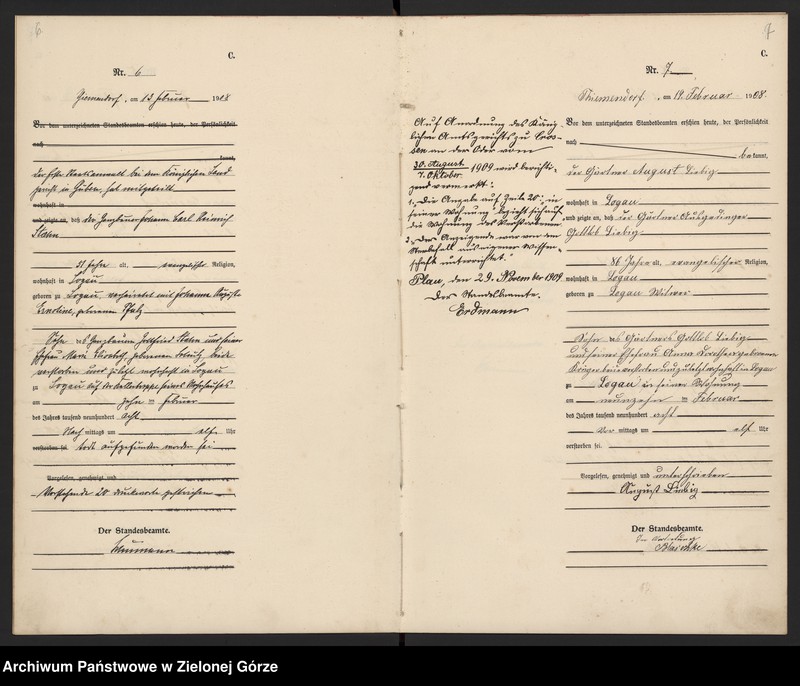 6
C.
Nr. 6
Thiemendorf, am 13. Februar 1908
Vor dem unterzeichneten Standesbeamten erschien heute, der Persönlichkeit
nach
kannt,
der Erste Staatsanwalt bei dem Königlichen Land
gericht in Guben, hat mitgeteilt
wohnhaft in
und zeigte an, daß der Johann Carl Heinrich
51 Jahre alt, evangelischer Religion,
wohnhaft in Logau
geboren zu Logau, verheiratet mit Johanne Auguste
Ernestine, geborenen
Sohn des und seiner
Ehefrau geborenen beide
verstorben und zuletzt wohnhaft in Logau
zu Logau auf der seines
am zehn ten Februar
des Jahres tausend neunhundert acht
Nach mittags um elf Uhr
verstorben sei. todt aufgefunden worden sei
Vorgelesen, genehmigt und
Vorstehende 20 Druckworte gestrichen
Der Standesbeamte.
7
C.
Nr. 7
Thiemendorf, am 19. Februar 1908.
Vor dem unterzeichneten Standesbeamten erschien heute, der Persönlichkeit
nach
be kannt,
der Gärtner August Liebig
wohnhaft in Logau
und zeigte an, daß der Gärtner Ausgedinger
Gottlob Liebig
86 Jahre alt, evangelischer Religion,
wohnhaft in Logau
geboren zu Logau Witwer
Sohn des Gärtners Gottlob Liebig
und seiner Ehefrau Anna Dorothea geborenen
Krüger beide verstorben und zuletzt wohnhaft in Logau
zu Logau in seiner Wohnung
am neunzehn ten Februar
des Jahres tausend neunhundert acht
Vor mittags um elf Uhr
verstorben sei.
Vorgelesen, genehmigt und unterschrieben
August Liebig
Der Standesbeamte.
In Vertretung
Blaschke
Auf Anordnung des König
lichen Amtsgerichts zu Cros-
sen an der Oder vom
30. August
7. Oktober 1909 wird berichti-
gend vermerkt:
1. Die Angabe auf Zeile 20: „in
seiner Wohnung" bezieht sich auf
die Wohnung des Verstorbenen.
2. Der Anzeigende war von dem
Sterbefall aus eigener Wissen-
schaft unterrichtet.
Plau, den 29. November 1909.
Der Standesbeamte.
Erdmann
Archiwum Państwowe w Zielonej Górze